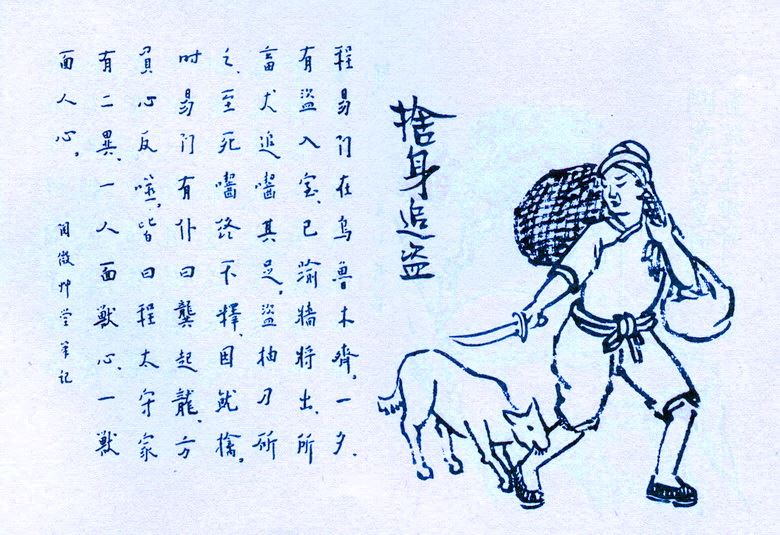 捨身追盗
程易门在烏魯木齊。一夕、
有盜入室、已踰牆将出、所
畜犬追嚙其足。盜抽刀斫
之、至死嚙终不釋、因就擒。
时易门有仆曰龔起龍、方
負心反噬。皆曰程太守家
有二異、一人面獸心、一獸
面人心。
閱微艸堂笔记